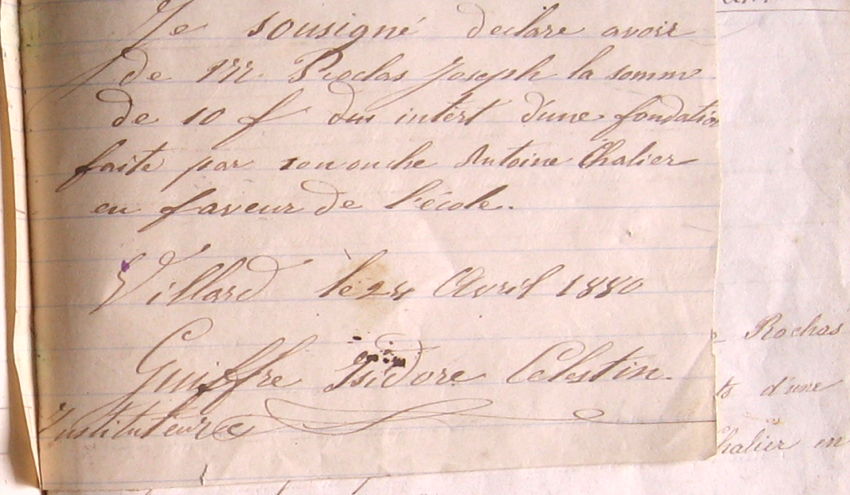 Je sousigné declare avoir
de Mr. Rochas Joseph la somme
de 10 f dun intert d'une fondation
faite par Antoine Chalier
en faveur de l'école.
Villard le 24 Avril 1880
Guiffre Isidore Celestin.
Instituteur
Rochas
ts d'une
Chalier en